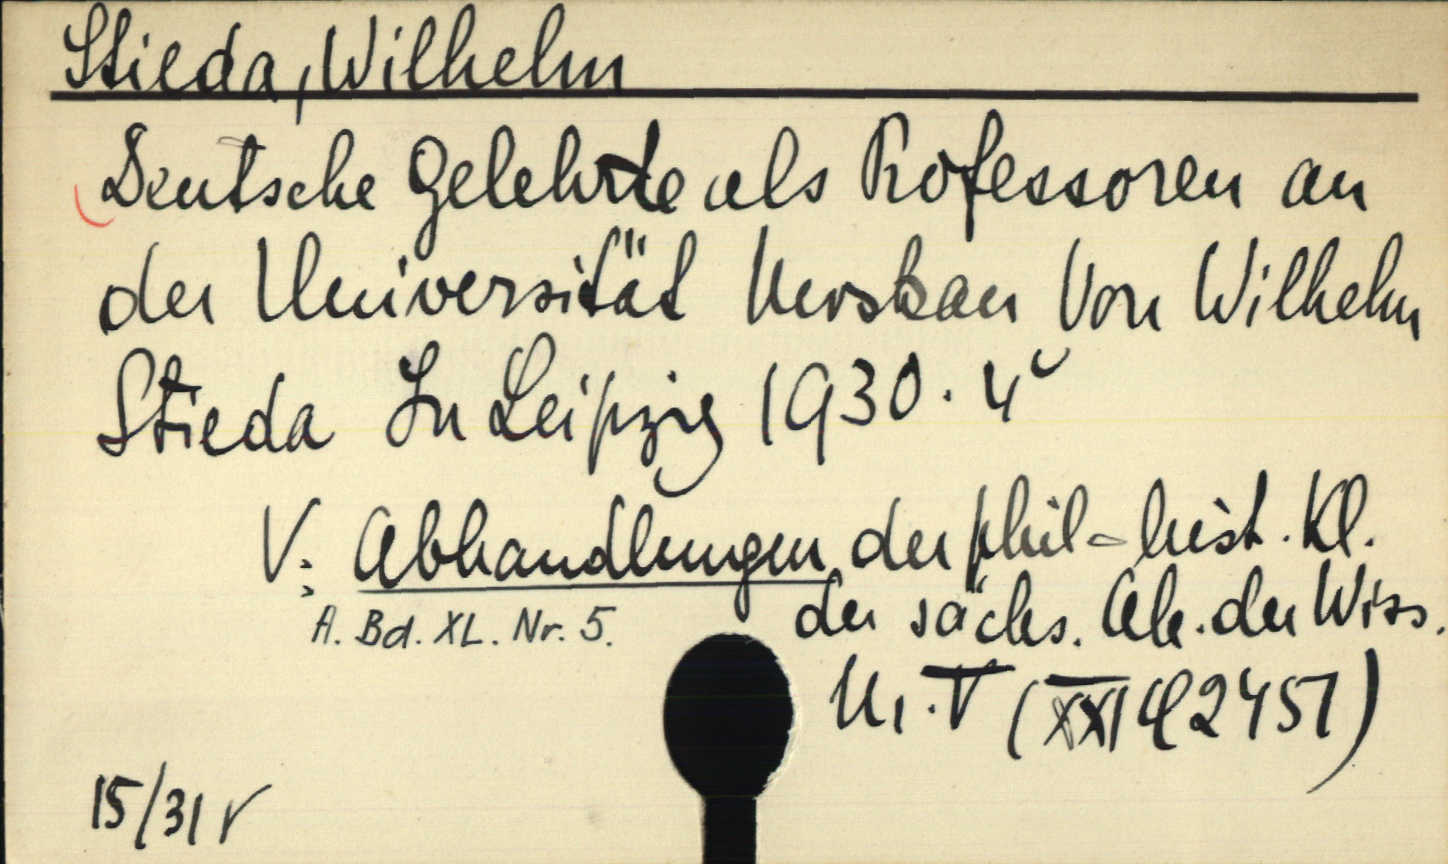 Stieda, Wilhelm
Deutsche Gelehrte als Professoren an
der Universität Moskau Von Wilhelm
Stieda In Leipzig 1930. 4°
V: Abhandlungen der phil-hist. Kl.
der sächs. Ak. der Wiss.
A. Bd. XL. Nr. 5.
(XXI 2451)
15/31